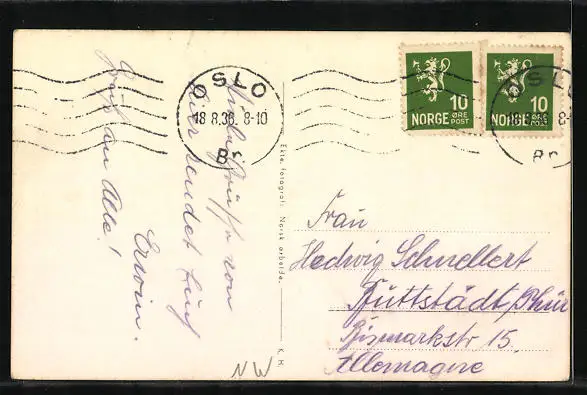 OSLO
18 8.36. 8-10
Br
10
NORGE ØRE
POST
10
NORGE ØRE
POST
OSLO
Br
Viele Grüße von
hier sendet Euch
Erwin.
Gruß an Alle!
Ekte fotografi. Norsk arbeide.
K. H.
Frau
Hedwig Schnellert
Buttstädt/Thür
Bismarkstr 15.
Allemagne
NW